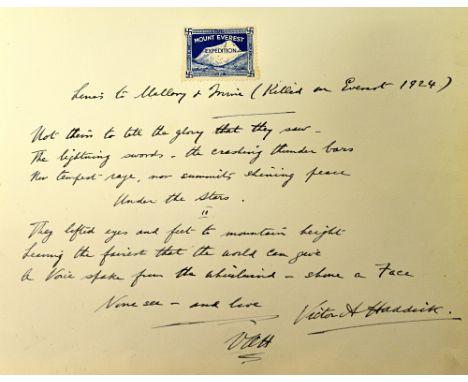 MOUNT EVEREST
EXPEDITION
Lines to Mallory & Irvine (Killed on Everest 1924)
Not theirs to tell the glory that they saw -
The lightning swords - the crashing thunder bars
Nor tempest rage, nor summits shining peace
Under the Stars.
II
They lifted eyes and feet to mountain height
Leaving the fairest that the world can give
A Voice spake from the whirlwind - shone a Face
None see - and live
Victor A Haddick.
VAH